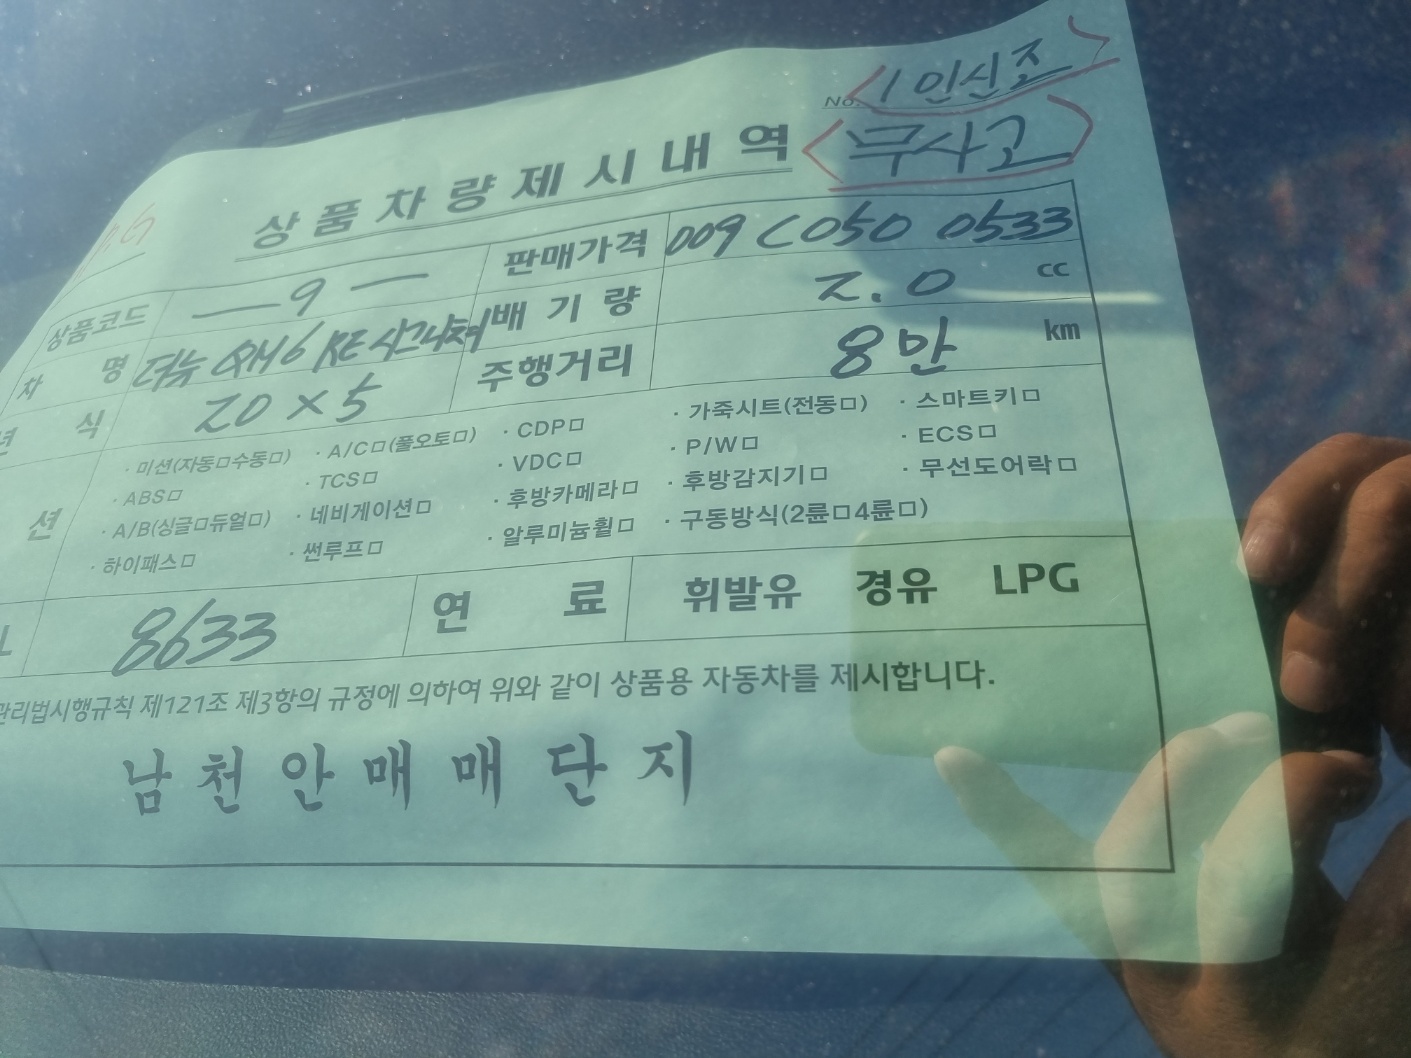 No. 1인신조
무사고
상품차량제시내역
상품코드 — 9 — 판매가격 009 C050 0533
차 명 더뉴 QM6 RE시그니쳐 배 기 량 2.0 cc
년 식 20 × 5 주행거리 8만 km
· 미션(자동□수동□) · A/C□(풀오토□) · CDP□ · 가죽시트(전동□) · 스마트키□
· ABS□ · TCS□ · VDC□ · P/W□ · ECS□
션 · A/B(싱글□듀얼□) · 네비게이션□ · 후방카메라□ · 후방감지기□ · 무선도어락□
· 하이패스□ · 썬루프□ · 알루미늄휠□ · 구동방식(2륜□4륜□)
8633 연 료 휘발유 경유 LPG
관리법시행규칙 제121조 제3항의 규정에 의하여 위와 같이 상품용 자동차를 제시합니다.
남천안매매단지